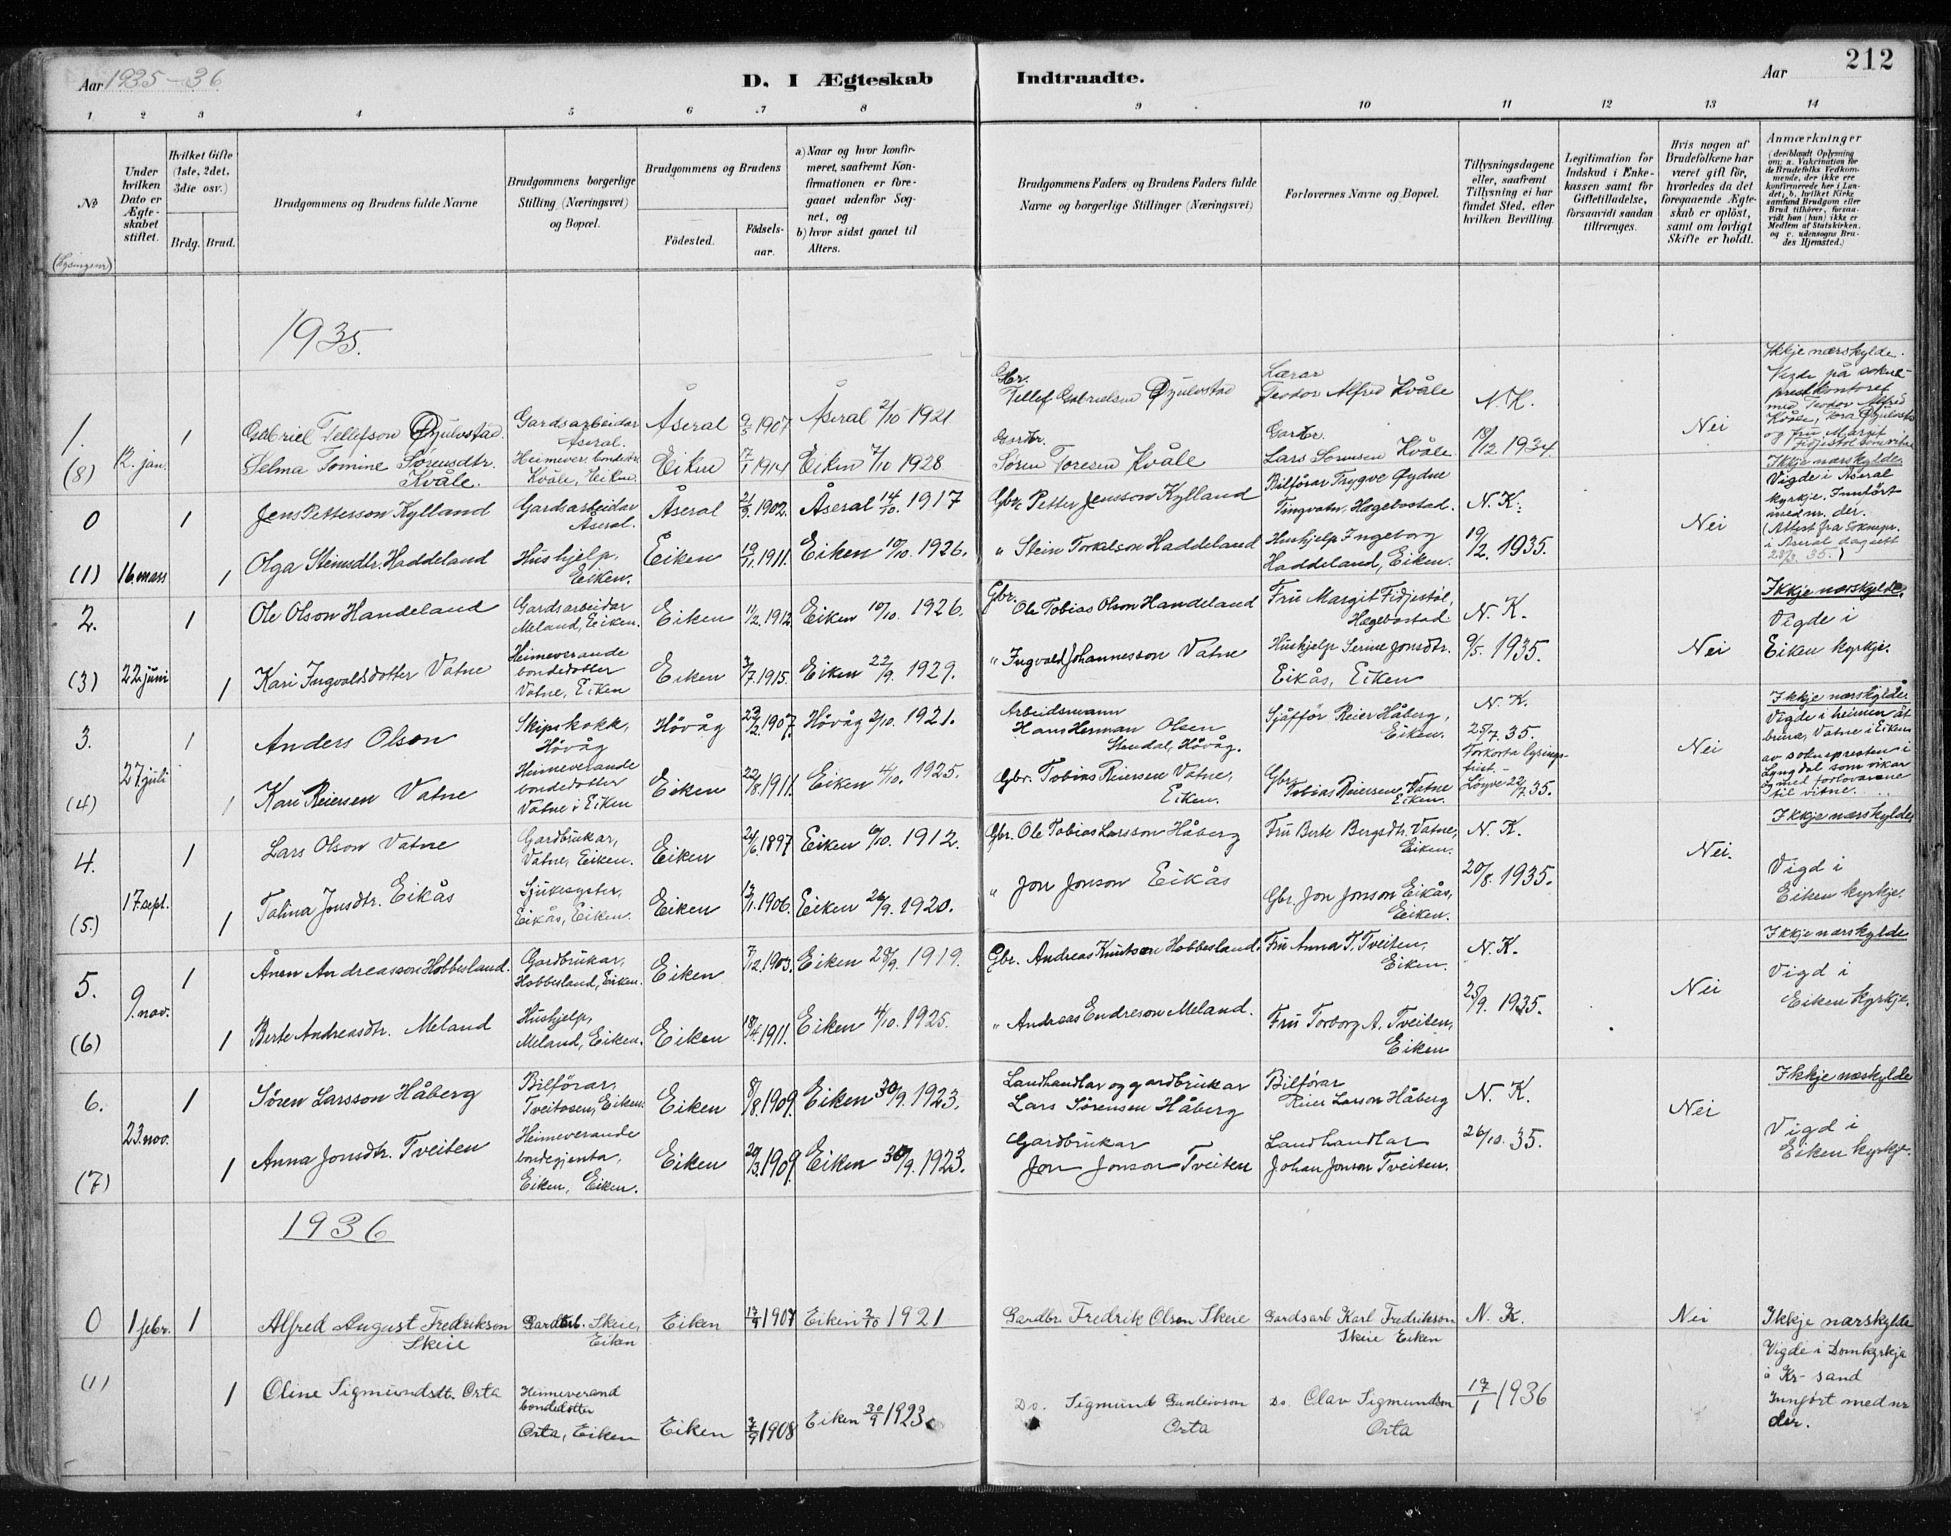 Aar 1935-36
D. I Ægteskab Indtraadte.
Aar
212
1 2 3 4 5 6 7 8 9 10 11 12 13 14
No
(Lysingsnr)
Under hvilken Dato er Ægteskabet stiftet.
Hvilket Gifte (1ste, 2det, 3die osv.)
Brdg. Brud.
Brudgommens og Brudens fulde Navne
Brudgommens borgerlige Stilling (Næringsvei) og Bopæl.
Brudgommens og Brudens
Födested.
Födselsaar.
a) Naar og hvor konfirmeret, saafremt Konfirmationen er foregaaet udenfor Sognet, og
b) hvor sidst gaaet til Alters.
Brudgommens Faders og Brudens Faders fulde Navne og borgerlige Stillinger (Næringsvei)
Forlovernes Navne og Bopæl.
Tillysningsdagene eller, saafremt Tillysning ei har fundet Sted, efter hvilken Bevilling.
Legitimation for Indskud i Enkekassen samt for Giftetilladelse, forsaavidt saadan tiltrænges.
Hvis nogen af Brudefolkene har været gift før, hvorledes da det foregaaende Ægteskab er oplöst, samt om lovligt Skifte er holdt.
Anmærkninger
(deriblandt Oplysning om: a. Vakcination for de Brudefolks Vedkommende, der ikke ere konfirmerede her i Landet; b. hvilket Kirkesamfund Brudgom eller Brud tilhörer, forsaavidt han (hun) ikke er Medlem af Statskirken. og c. udensogns Brudes Hjemsted.)
1935.
1. 12. jan. 1 Gabriel Tellefson Øjulvstad. Gardsarbeidar Åseral. Åseral 9/5 1907 Åseral 2/10 1921 Gbr. Tellef Gabrielsen Øjulvstad Lærar Teodor Alfred Kvåle N. K. Nei
(8) Selma Tomine Sørensdtr. Kvåle. Heimever. bondedtr. Kvåle, Eiken. Eiken 7/1 1914 Eiken 7/10 1928 Gardbr. Søren Toresen Kvåle Gardbr. Lars Sørensen Kvåle 18/12 1934
Ikkje nærskylde. Vigde på sokneprestkontoret med Teodor Alfred Kvåle, Tora Øjulvstad og fru Margit Fidjestøl som vitne
0 1 Jens Pettersson Kylland Gardsarbeidar Åseral. Åseral 21/9 1902. Åseral 14/10. 1917 Gbr. Petter Jensson Kylland Bilförar Trygve Øydne Tingvatn, Hægebostad. N. K. Nei
(1) 16. mars 1 Olga Steinsdtr. Haddeland Hushjelp, Eiken. Eiken 19/11. 1911. Eiken 10/10. 1926. " Stein Torkelson Haddeland Hushjelp Ingeborg Haddeland, Eiken. 19/2. 1935.
Ikkje nærskylde Vigde i Åseral kyrkje. Innfört med nr. der. (Attest fra soknepr. i Åseral dagsett 20/3. 35.)
2. 1 Ole Olson Handeland Gardsarbeidar Meland, Eiken. Eiken 11/2. 1912 Eiken 10/10. 1926. Gbr. Ole Tobias Olson Handeland Fru Margit Fidjestöl, Hægebostad N. K. Nei
(3) 22 juni 1 Kari Ingvaldsdotter Vatne Heimeverande bondedotter Vatne, Eiken Eiken 3/7. 1915. Eiken 22/9. 1929. " Ingvald Johannesson Vatne Hushjelp Serine Jonsdtr. Eikås, Eiken 9/5. 1935.
Ikkje nærskylde. Vigde i Eiken kyrkje.
3. 27 juli 1 Anders Olson Skipskokk, Hövåg Hövåg 23/2 1907. Hövåg 2/10. 1921. Arbeidsmann Hans Herman Olsen Stendal, Hövåg. Sjåfför Reier Håberg, Eiken. N. K. 25/7. 35. Nei
(4) 1 Kari Reiersen Vatne Heimeverande bondedotter Vatne i Eiken Eiken 22/8. 1911. Eiken 4/10. 1925. Gbr. Tobias Reiersen Vatne, Eiken. Gbr. Tobias Reiersen Vatne Eiken. Forkorta lysingsfrist. - Löyve 22/7. 35.
Ikkje nærskylde. Vigde i heimen åt brura, Vatne i Eiken av soknepresten i Lyngdal som vikar med forlovarane til vitne.
4. 1 Lars Olson Vatne Gardbrukar, Vatne, Eiken. Eiken 24/6. 1897 Eiken 6/10. 1912. Gbr. Ole Tobias Larsson Håberg Fru Berte Bergsdtr. Vatne, Eiken. N. K. Nei.
(5) 17. sept. 1 Talina Jonsdtr. Eikås Sjukesyster, Eikås, Eiken. Eiken 13/1. 1906. Eiken 26/9. 1920. " Jon Jonson Eikås Gbr. Jon Jonson Eikås, Eiken. 20/8. 1935.
Ikkje nærskylde Vigd i Eiken kyrkje.
5. 9. nov. 1 Ånen Andreasson Hobbesland. Gardbrukar, Hobbesland, Eiken. Eiken 7/12. 1903. Eiken 28/9. 1919. Gbr. Andreas Knutson Hobbesland. Fru Anna T. Tveiten, Eiken. N. K. Nei
(6) 1 Berte Andreasdtr. Meland Hushjelp, Meland, Eiken. Eiken 18/4. 1911. Eiken 4/10. 1925. " Andreas Endreson Meland. Fru Torborg A. Tveiten, Eiken 25/9. 1935.
Ikkje nærskylde Vigd i Eiken kyrkje.
6. 23. nov. 1 Sören Larsson Håberg Bilförar, Tveitosen, Eiken. Eiken 8/8. 1909. Eiken 30/9. 1923. Landhandlar og gardbrukar Lars Sörensen Håberg Bilförar Reier Larson Håberg N. K. Nei
(7) 1 Anna Jonsdtr. Tveiten Heimeverande bondegjenta, Eiken, Eiken. Eiken 20/3. 1909. Eiken 30/9. 1923. Gardbrukar Jon Jonson Tveiten Landhandlar Johan Jonson Tveiten. 26/10. 35.
Ikkje næskylde Vigd i Eiken kyrkje.
1936
0 1 febr. 1 Alfred August Fredrikson Skeie Gardarb. Skeie, Eiken Eiken 17/9 1907 Eiken 2/10 1921 Gardbr. Fredrik Olson Skeie Gardsarb Karl Fredrikson Skeie Eiken N. K. Nei
(1) 1 Oline Sigmundsdt. Orta Heimeverand bondedotter Orta, Eiken Eiken 3/9 1908 Eiken 30/9 1923. Do. Sigmund Gunleivson Orta Do. Olav Sigmundson Orta 17/1 1936
Ikkje nærskylde Vigde i Domkyrkja i Kr-sand Innført med nr der.